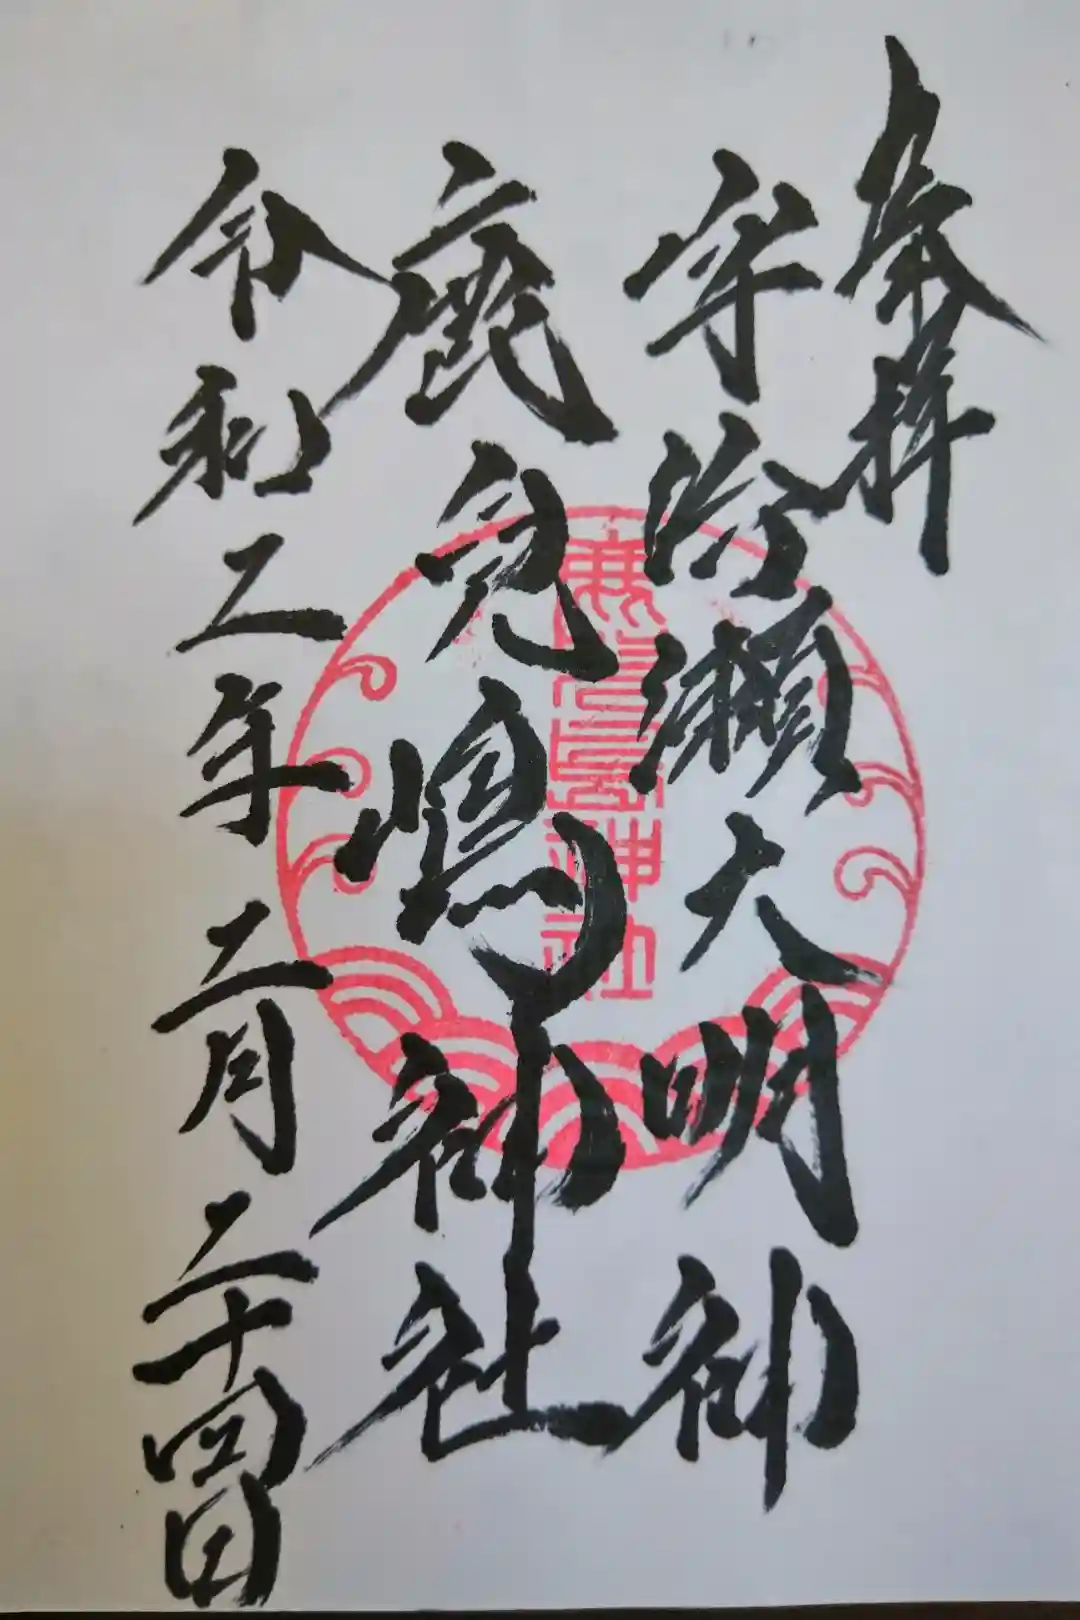 奉拝
宇治瀬大明神
鹿児嶋神社
令和二年二月二十四日
鹿児島神社